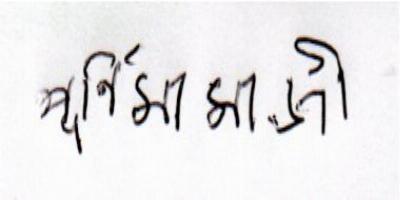 পূর্ণিমা মাঝী